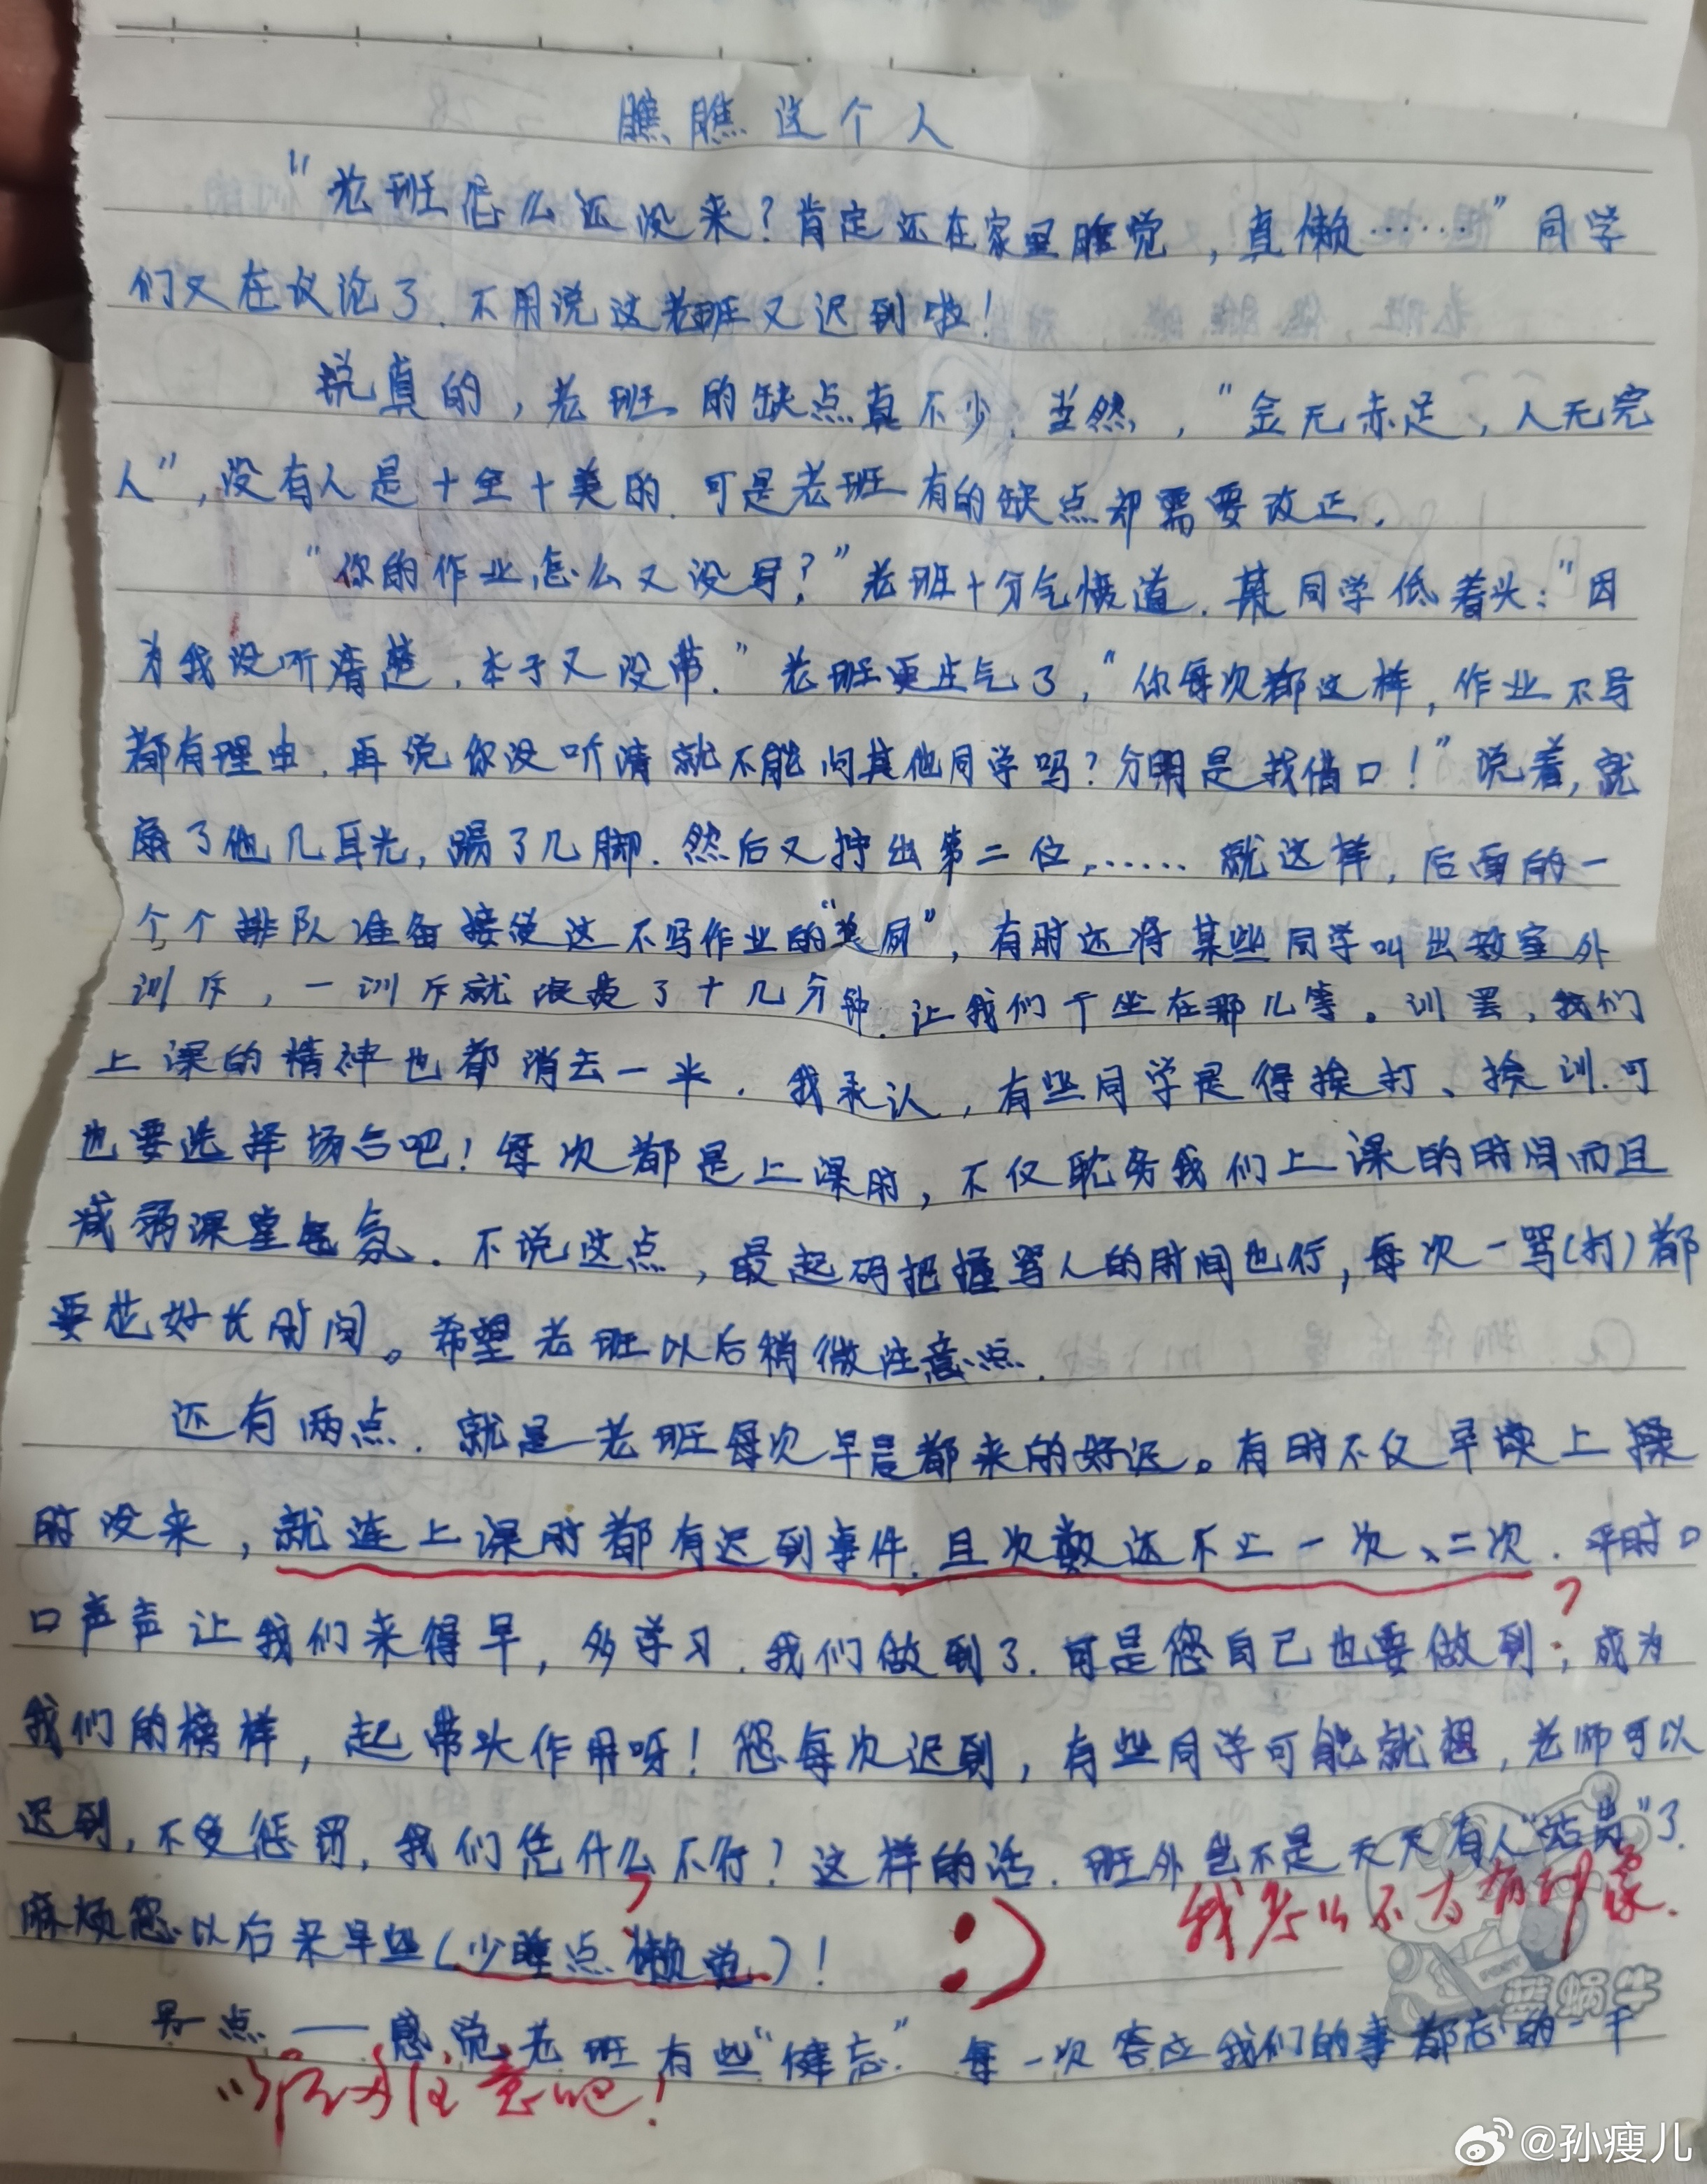 瞧瞧这个人
“老班怎么还没来？肯定还在家里睡觉，真懒……”同学
们又在议论了.不用说这老班又迟到啦！
说真的，老班的缺点真不少.当然，“金无赤足，人无完
人”，没有人是十全十美的.可是老班有的缺点却需要改正.
“你的作业怎么又没写？”老班十分气愤道.某同学低着头：“因
为我没听清楚.本子又没带.”老班更生气了，“你每次都这样，作业不写
都有理由.再说你没听清就不能问其他同学吗？分明是找借口！”说着，就
扇了他几耳光，踢了几脚.然后又拧出第二位，……就这样，后面的一
个个排队准备接受这不写作业的“惩罚”，有时还将某些同学叫出教室外
训斥，一训斥就浪费了十几分钟.让我们干坐在那儿等。训罢，我们
上课的精神也都消去一半.我承认，有些同学是得挨打、挨训.可
也要选择场合吧！每次都是上课时，不仅耽务我们上课的时间而且
减弱课堂气氛.不说这点，最起码把握骂人的时间也行，每次一骂(打)都
要些好长时间。希望老班以后稍微注意点.
还有两点.就是老班每次早晨都来的好迟。有时不仅早读上操
时没来，就连上课时都有迟到事件.且次数还不止一次、二次.平时口
口声声让我们来得早，多学习.我们做到了.可是您自己也要做到；成为
我们的榜样，起带头作用呀！您每次迟到，有些同学可能就想，老师可以
迟到，不受惩罚，我们凭什么不行？这样的话.班外岂不是天天有人“站岗”了.
麻烦您以后来早些(少睡点懒觉)！
:)
我怎么不有的印象.
另一点——感觉老班有些“健忘”.每一次答应我们的事都忘的一干
以后多注意吧！
@孙瘦儿